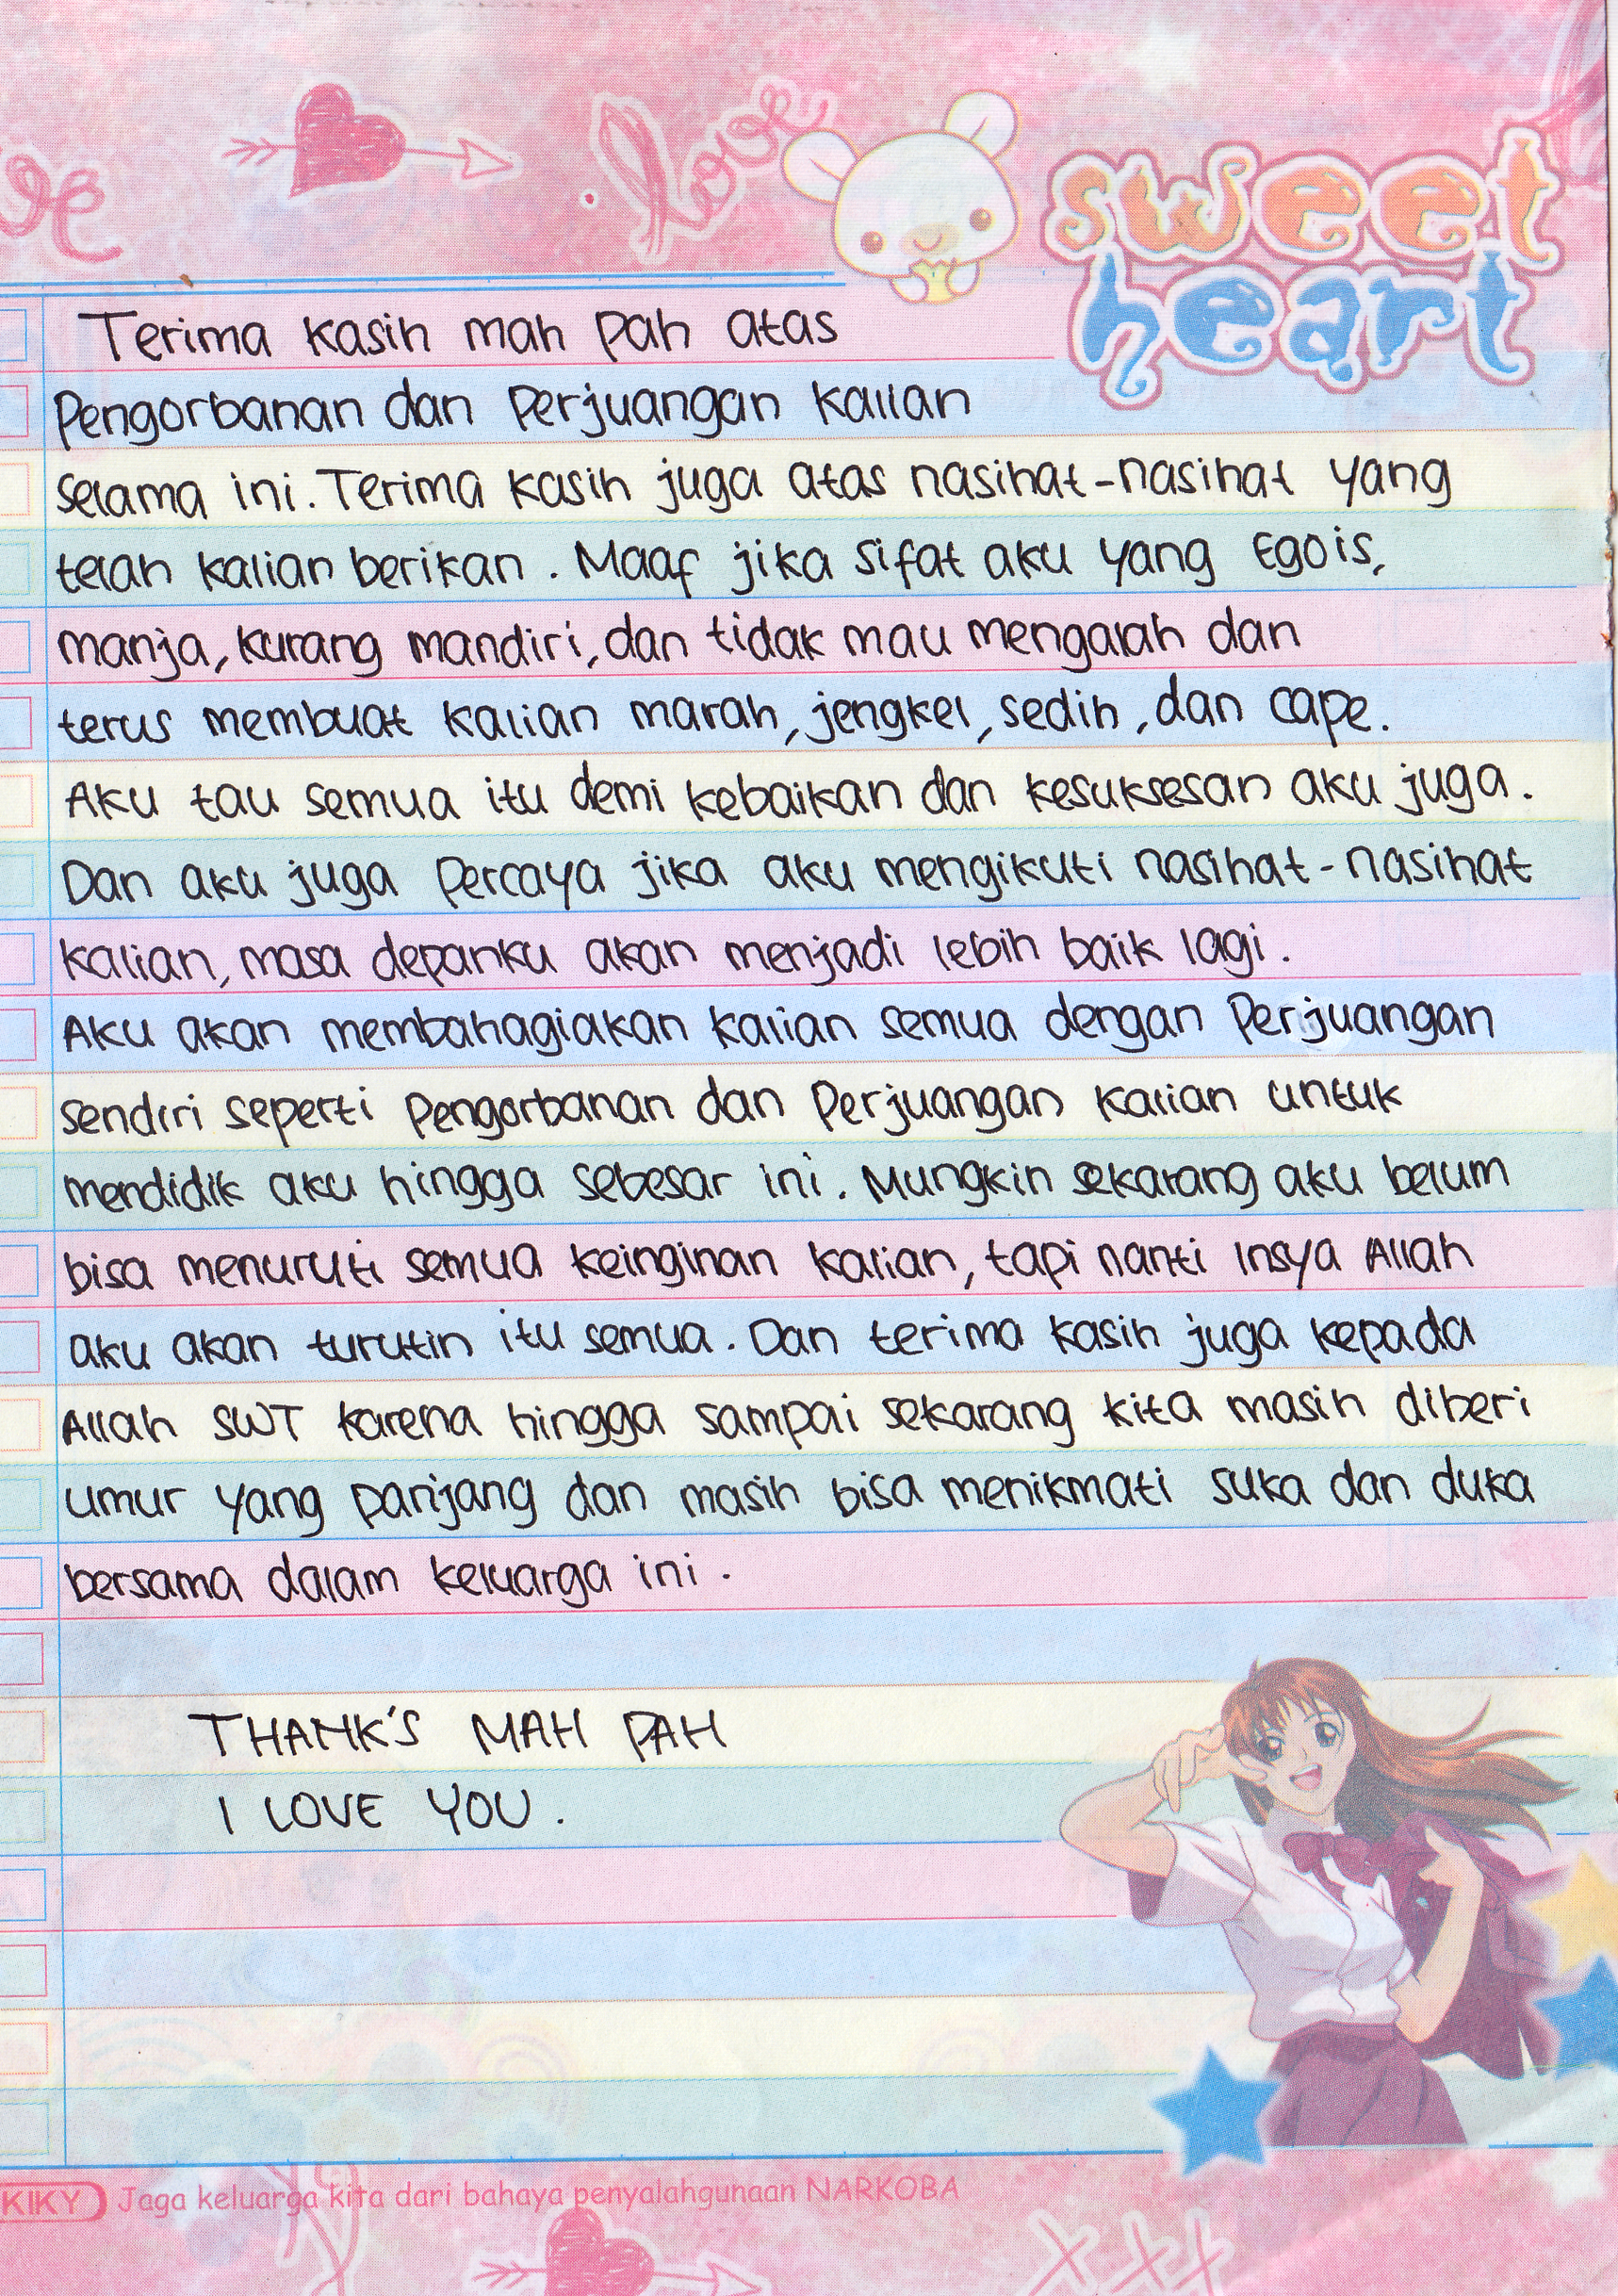 ve
love
sweet
heart
Terima kasih mah pah atas
Pengorbanan dan Perjuangan kalian
selama ini. Terima kasih juga atas nasihat-nasihat yang
telah kalian berikan. Maaf jika sifat aku yang Egois,
manja, kurang mandiri, dan tidak mau mengalah dan
terus membuat kalian marah, jengkel, sedih, dan cape.
Aku tau semua itu demi kebaikan dan kesuksesan aku juga.
Dan aku juga Percaya jika aku mengikuti nasihat-nasihat
kalian, masa depanku akan menjadi lebih baik lagi.
Aku akan membahagiakan kalian semua dengan Perjuangan
sendiri seperti Pengorbanan dan Perjuangan kalian untuk
mendidik aku hingga sebesar ini. Mungkin sekarang aku belum
bisa menuruti semua keinginan kalian, tapi nanti Insya Allah
aku akan turutin itu semua. Dan terima kasih juga kepada
Allah SWT karena hingga sampai sekarang kita masih diberi
umur yang panjang dan masih bisa menikmati suka dan duka
bersama dalam keluarga ini.
THANK'S MAH PAH
I LOVE YOU.
KIKY Jaga keluarga kita dari bahaya penyalahgunaan NARKOBA
XXX